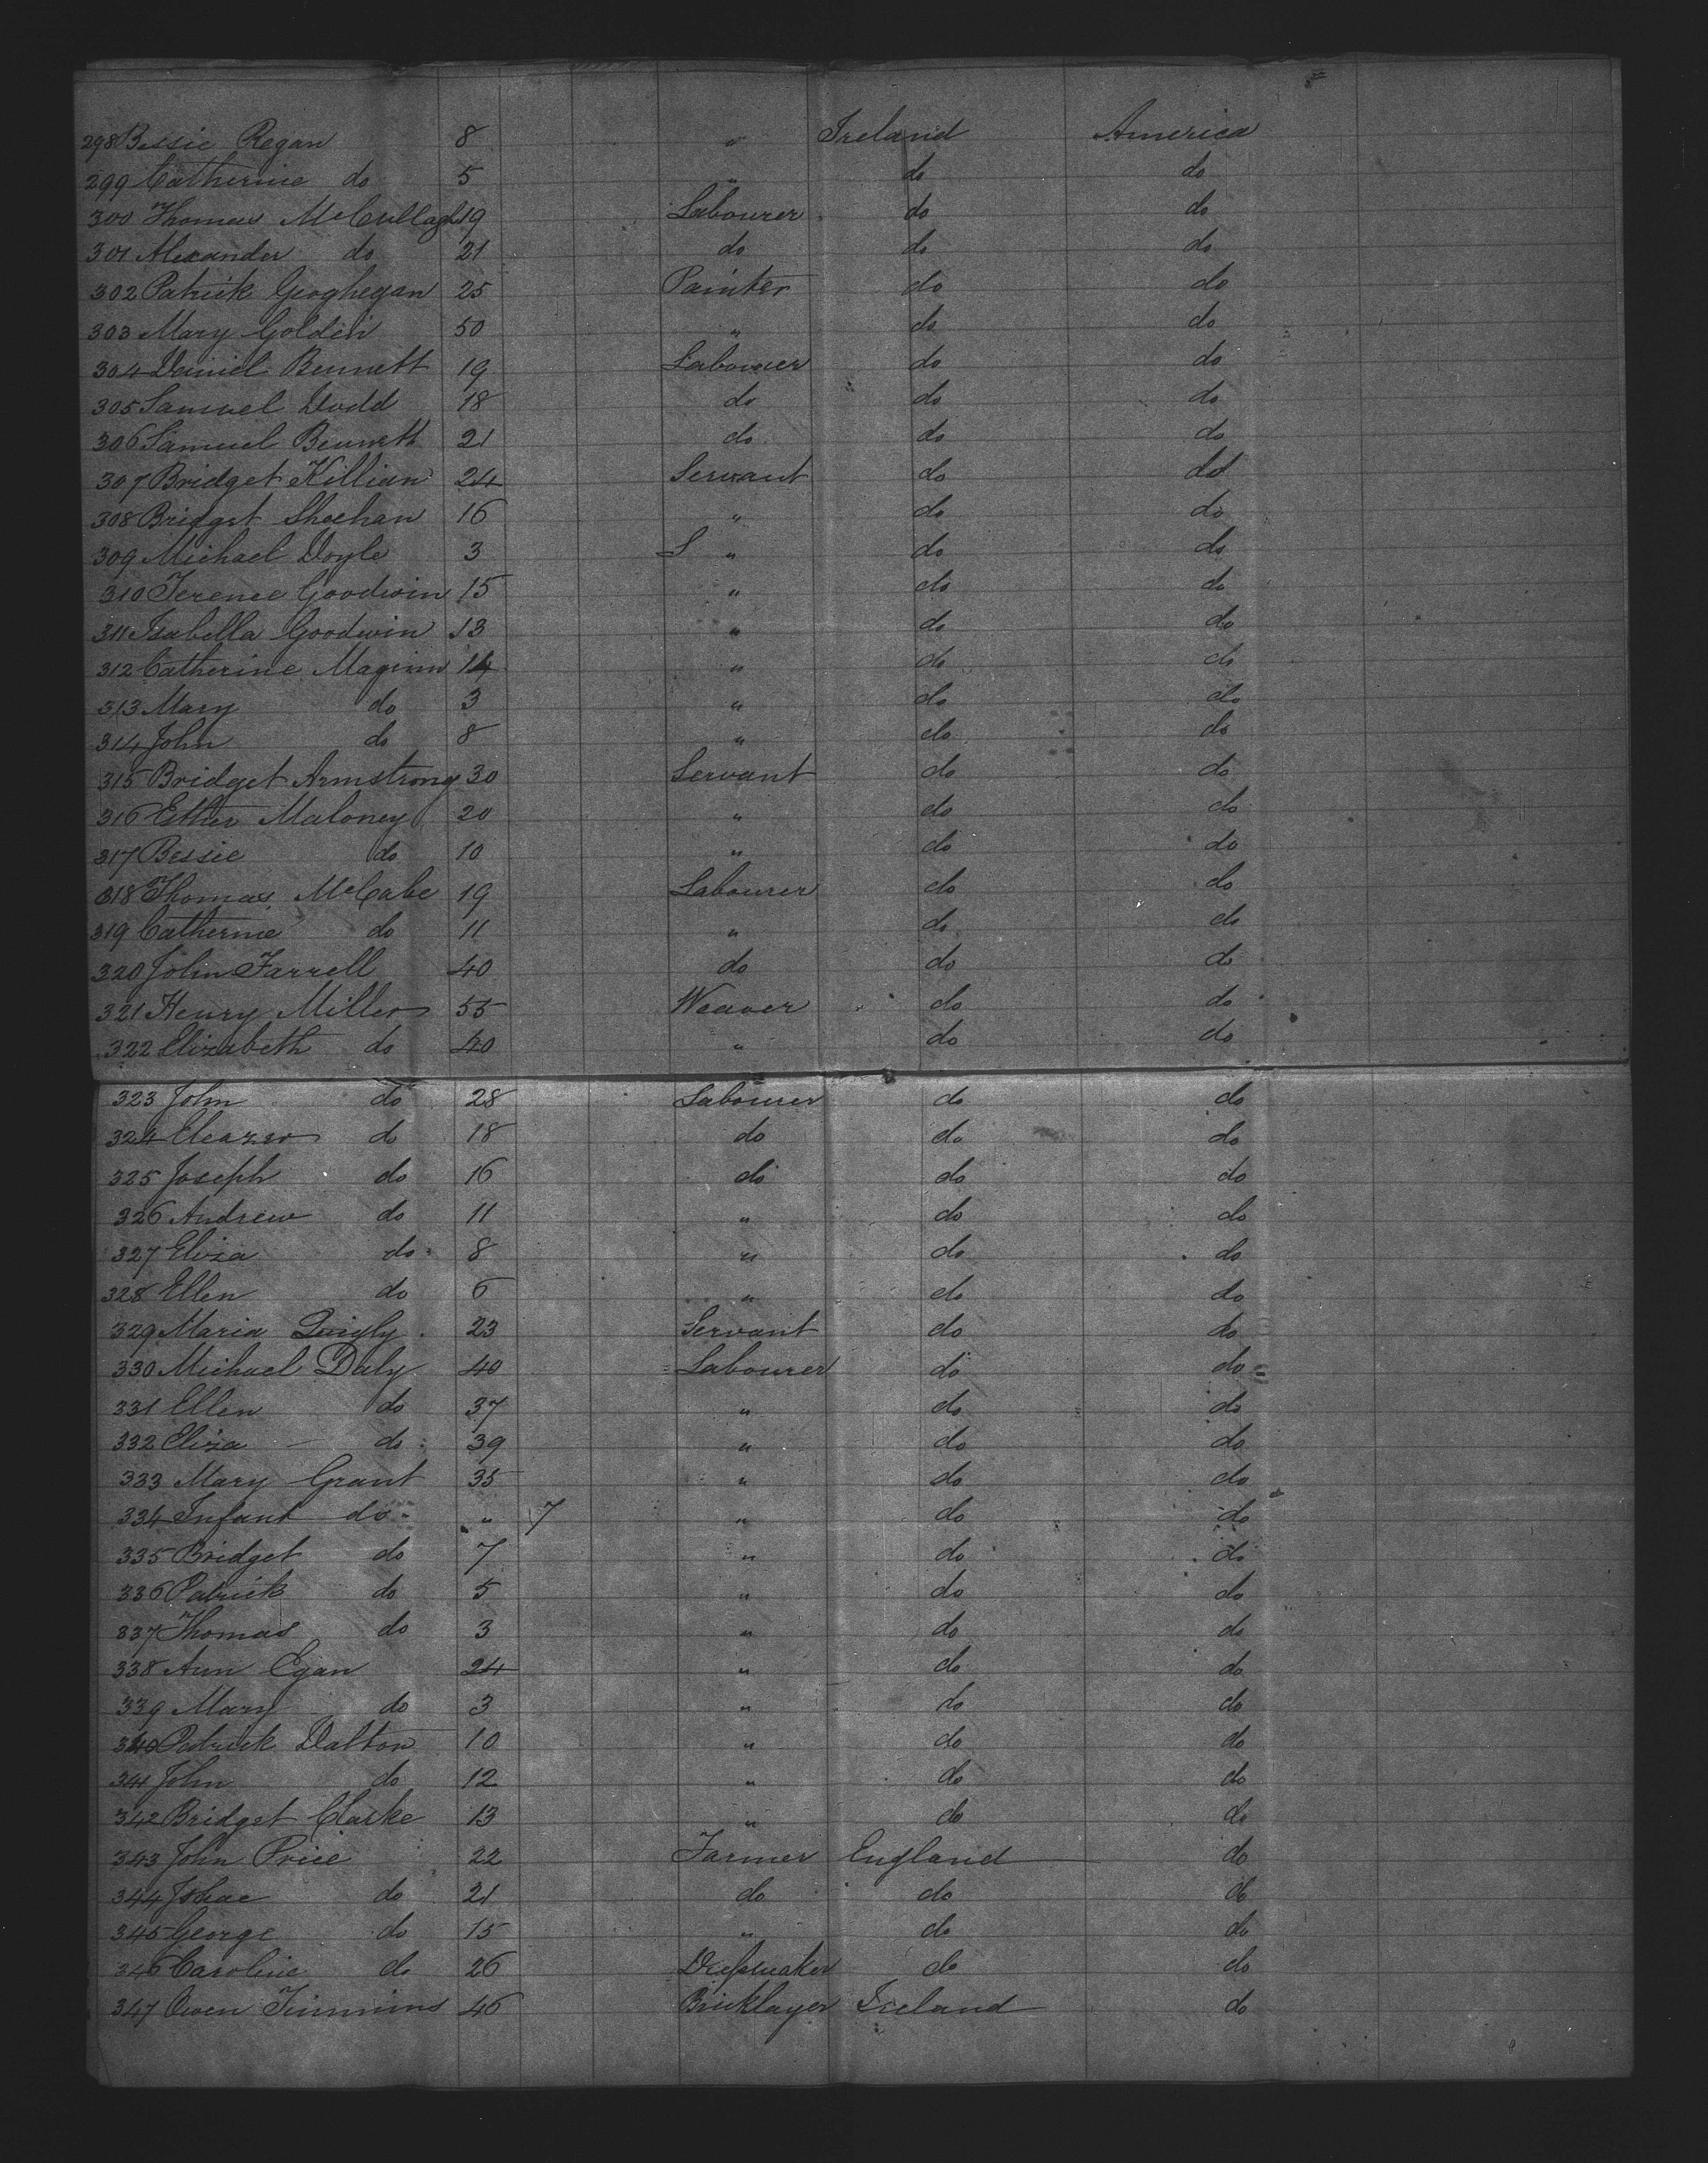 298 Bessie Regan 8 " Ireland America
299 Catherine do 5 " do do
300 Thomas McCullagh 19 Labourer do do
301 Alexander do 21 do do do
302 Patrick Geoghegan 25 Painter do do
303 Mary Golden 50 " do do
304 Daniel Bennett 19 Labourer do do
305 Samuel Dodd 18 do do do
306 Samuel Bennett 21 do do do
307 Bridget Killian 24 Servant do do
308 Bridget Sheehan 16 " do do
309 Michael Doyle 3 S " do do
310 Terence Goodwin 15 " do do
311 Isabella Goodwin 13 " do do
312 Catherine Maginn 14 " do do
313 Mary do 3 " do do
314 John do 8 " do do
315 Bridget Armstrong 30 Servant do do
316 Esther Maloney 20 " do do
317 Bessie do 10 " do do
318 Thomas McCabe 19 Labourer do do
319 Catherine do 11 " do do
320 John Farrell 40 do do do
321 Henry Miller 55 Weaver do do
322 Elizabeth do 40 " do do
323 John do 28 Labourer do do
324 Eleazer do 18 do do do
325 Joseph do 16 do do do
326 Andrew do 11 " do do
327 Eliza do 8 " do do
328 Ellen do 6 " do do
329 Maria Quigly 23 Servant do do
330 Michael Daly 40 Labourer do do
331 Ellen do 37 " do do
332 Eliza do 39 " do do
333 Mary Grant 35 " do do
334 Infant do " 7 " do do
335 Bridget do 7 " do do
336 Patrick do 5 " do do
337 Thomas do 3 " do do
338 Ann Egan 24 " do do
339 Mary do 3 " do do
340 Patrick Dalton 10 " do do
341 John do 12 " do do
342 Bridget Clarke 13 " do do
343 John Price 22 Farmer England do
344 do 21 do do do
345 George do 15 " do do
346 Caroline do 26 Dressmaker do do
347 Owen Timmins 46 Bricklayer Ireland do